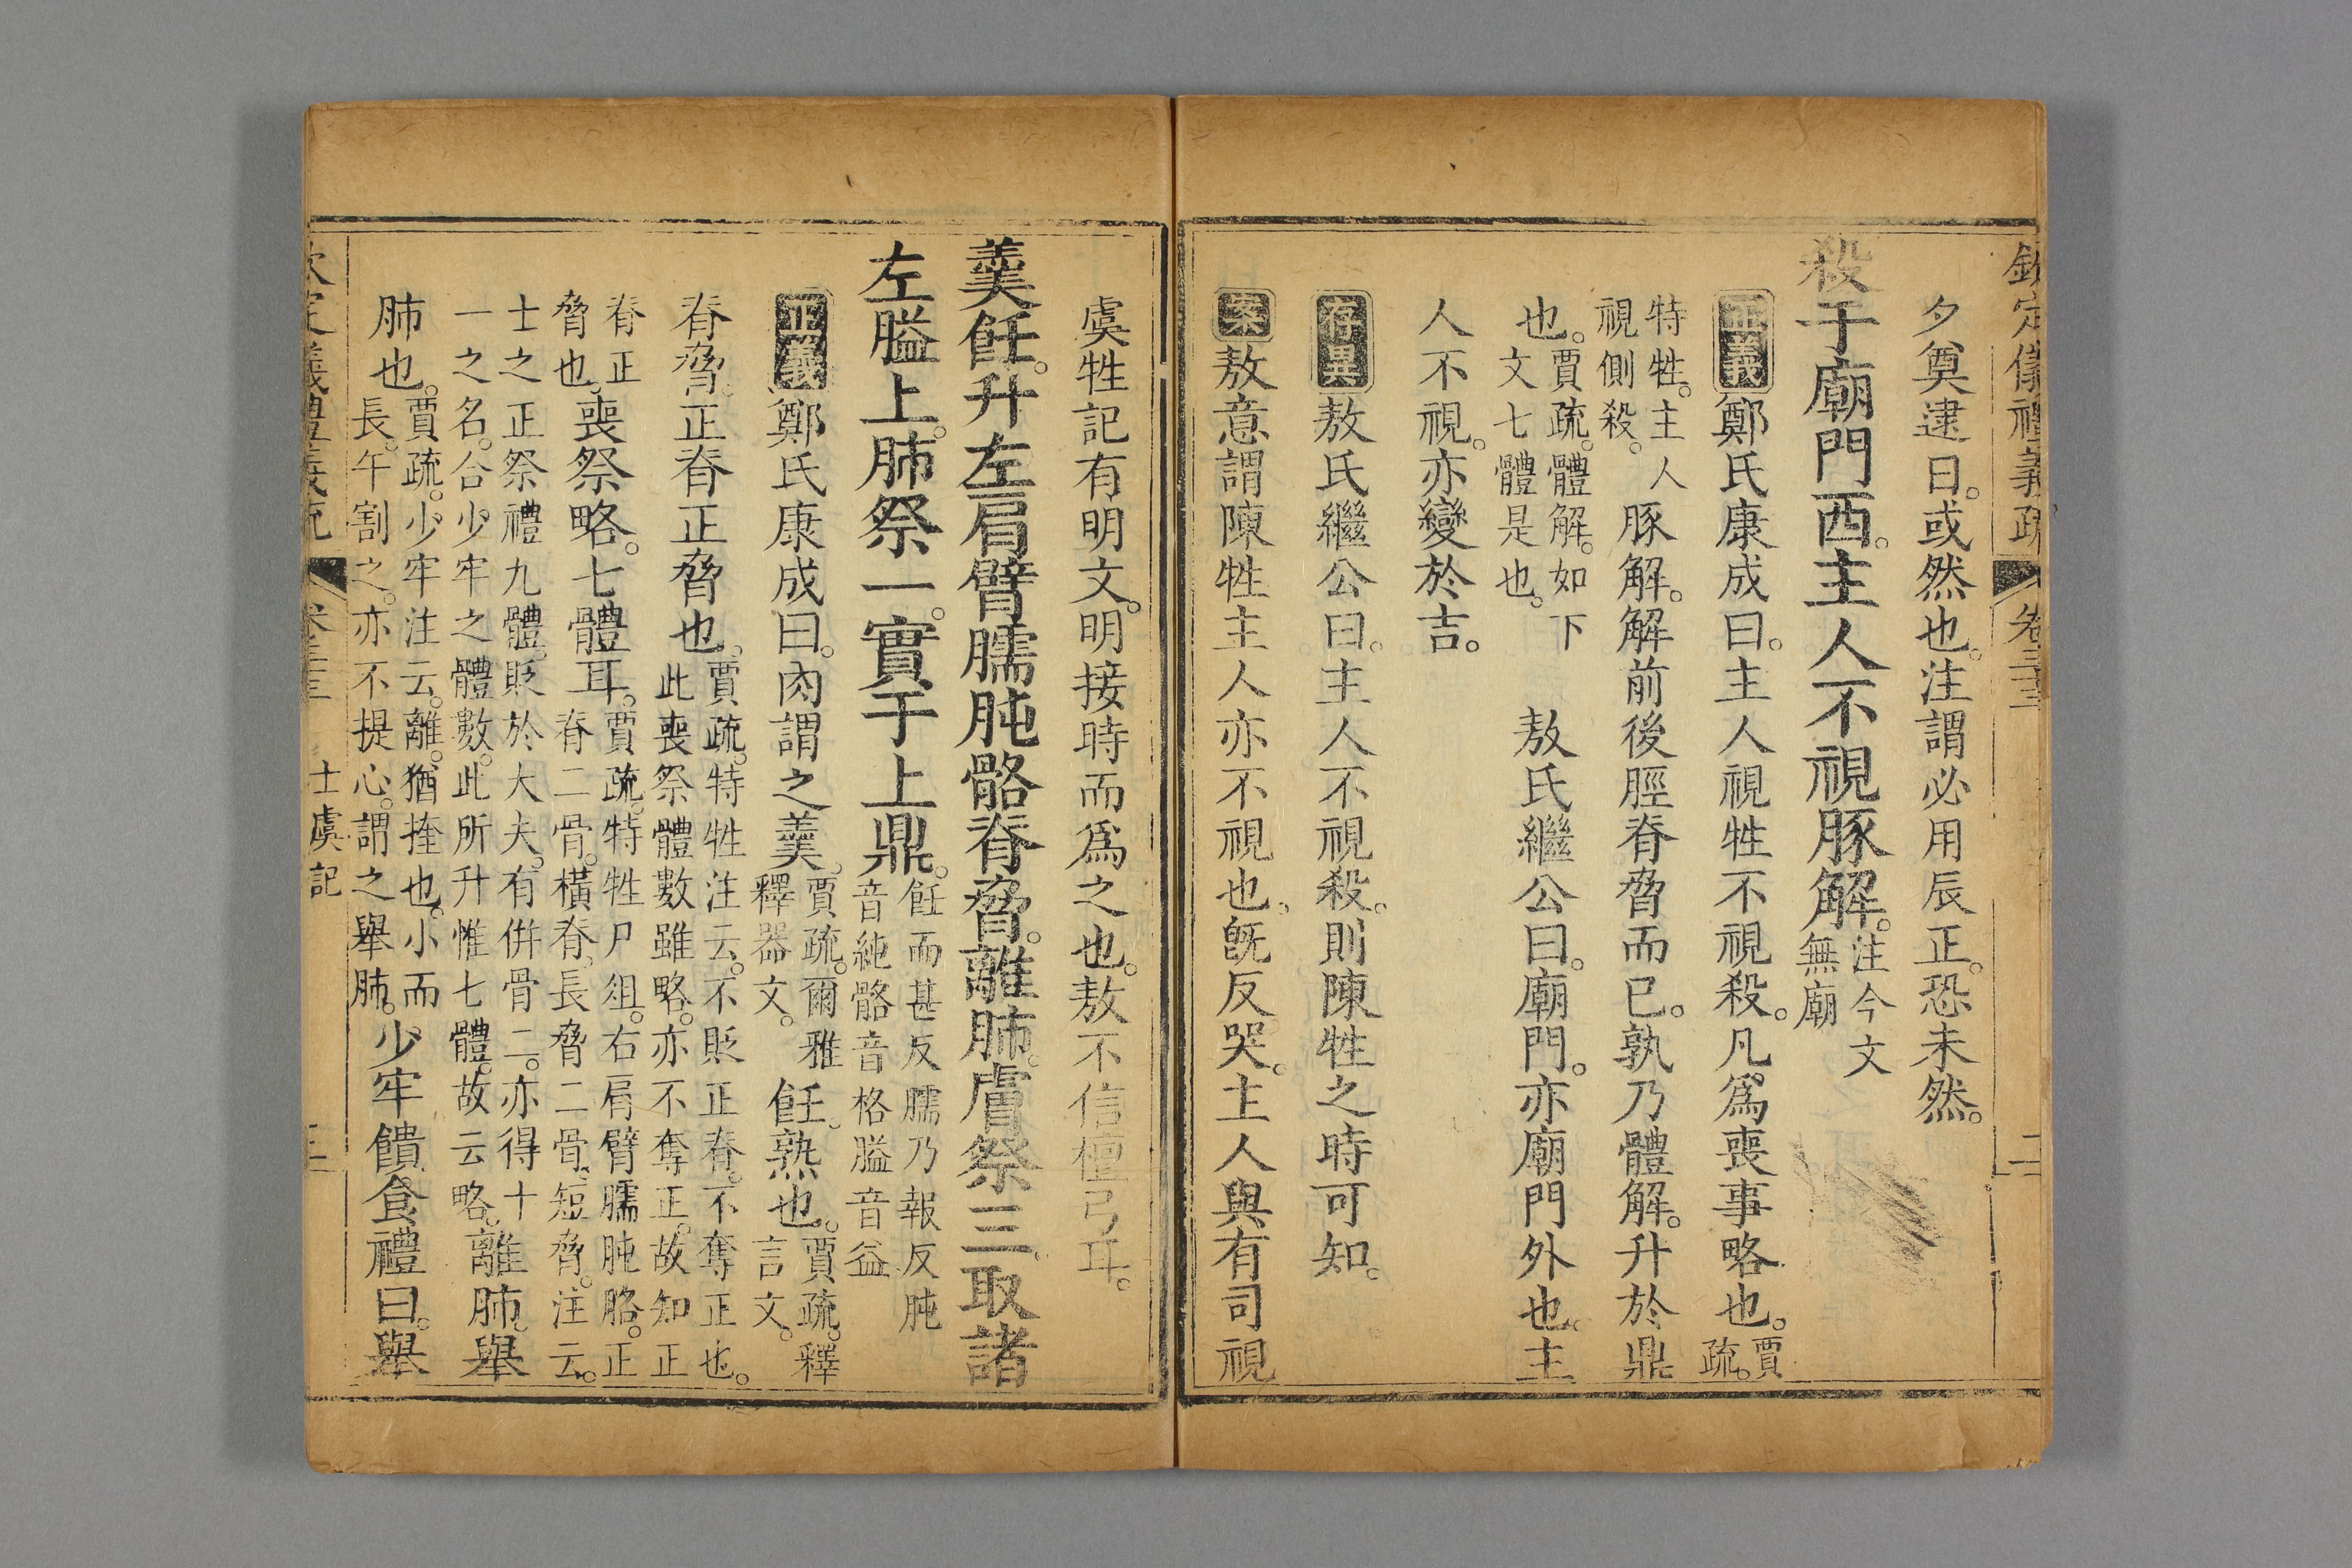 欽定儀禮義疏 卷三十三 二
夕奠逮日。或然也。注謂必用辰正。恐未然。
殺于廟門西。主人不視豚解。注今文無廟
正義鄭氏康成曰。主人視牲不視殺。凡爲喪事略也。賈疏。
特牲。主人視側殺。豚解。解前後脛脊脅而已。孰乃體解。升於鼎
也。賈疏。體解。如下文七體是也。敖氏繼公曰。廟門。亦廟門外也。主
人不視。亦變於吉。
存異敖氏繼公曰。主人不視殺。則陳牲之時可知。
案敖意謂陳牲主人亦不視也。旣反哭。主人與有司視
虞牲記有明文。明接時而爲之也。敖不信檀弓耳。
羹飪。升左肩臂臑肫骼脊脅。離肺。膚祭三。取諸
左膉上。肺祭一。實于上鼎。飪而甚反臑乃報反肫音純骼音格膉音益
正義鄭氏康成曰。肉謂之羹。賈疏。爾雅釋器文。飪。熟也。賈疏。釋言文。
脊脅。正脊正脅也。賈疏。特牲注云。不貶正脊。不奪正也。此喪祭體數雖略。亦不奪正。故知正
脊正脅也。喪祭略。七體耳。賈疏。特牲尸俎。右肩臂臑肫胳。正脊二骨。橫脊。長脅二骨。短脅。注云。
士之正祭禮九體。貶於大夫。有倂骨二。亦得十一之名。合少牢之體數。此所升惟七體。故云略。離肺。舉
肺也。賈疏。少牢注云。離。猶挫也。小而長。午割之。亦不提心。謂之舉肺。少牢饋食禮曰。舉
欽定儀禮義疏 卷三十三 士虞記 三